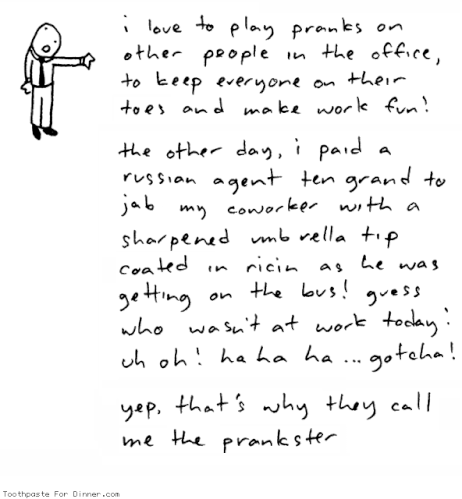 i love to play pranks on
other people in the office,
to keep everyone on their
toes and make work fun!
the other day, i paid a
russian agent ten grand to
jab my coworker with a
sharpened umbrella tip
coated in ricin as he was
getting on the bus! guess
who wasn't at work today!
uh oh! ha ha ha ... gotcha!
yep, that's why they call
me the prankster
Toothpaste For Dinner.com